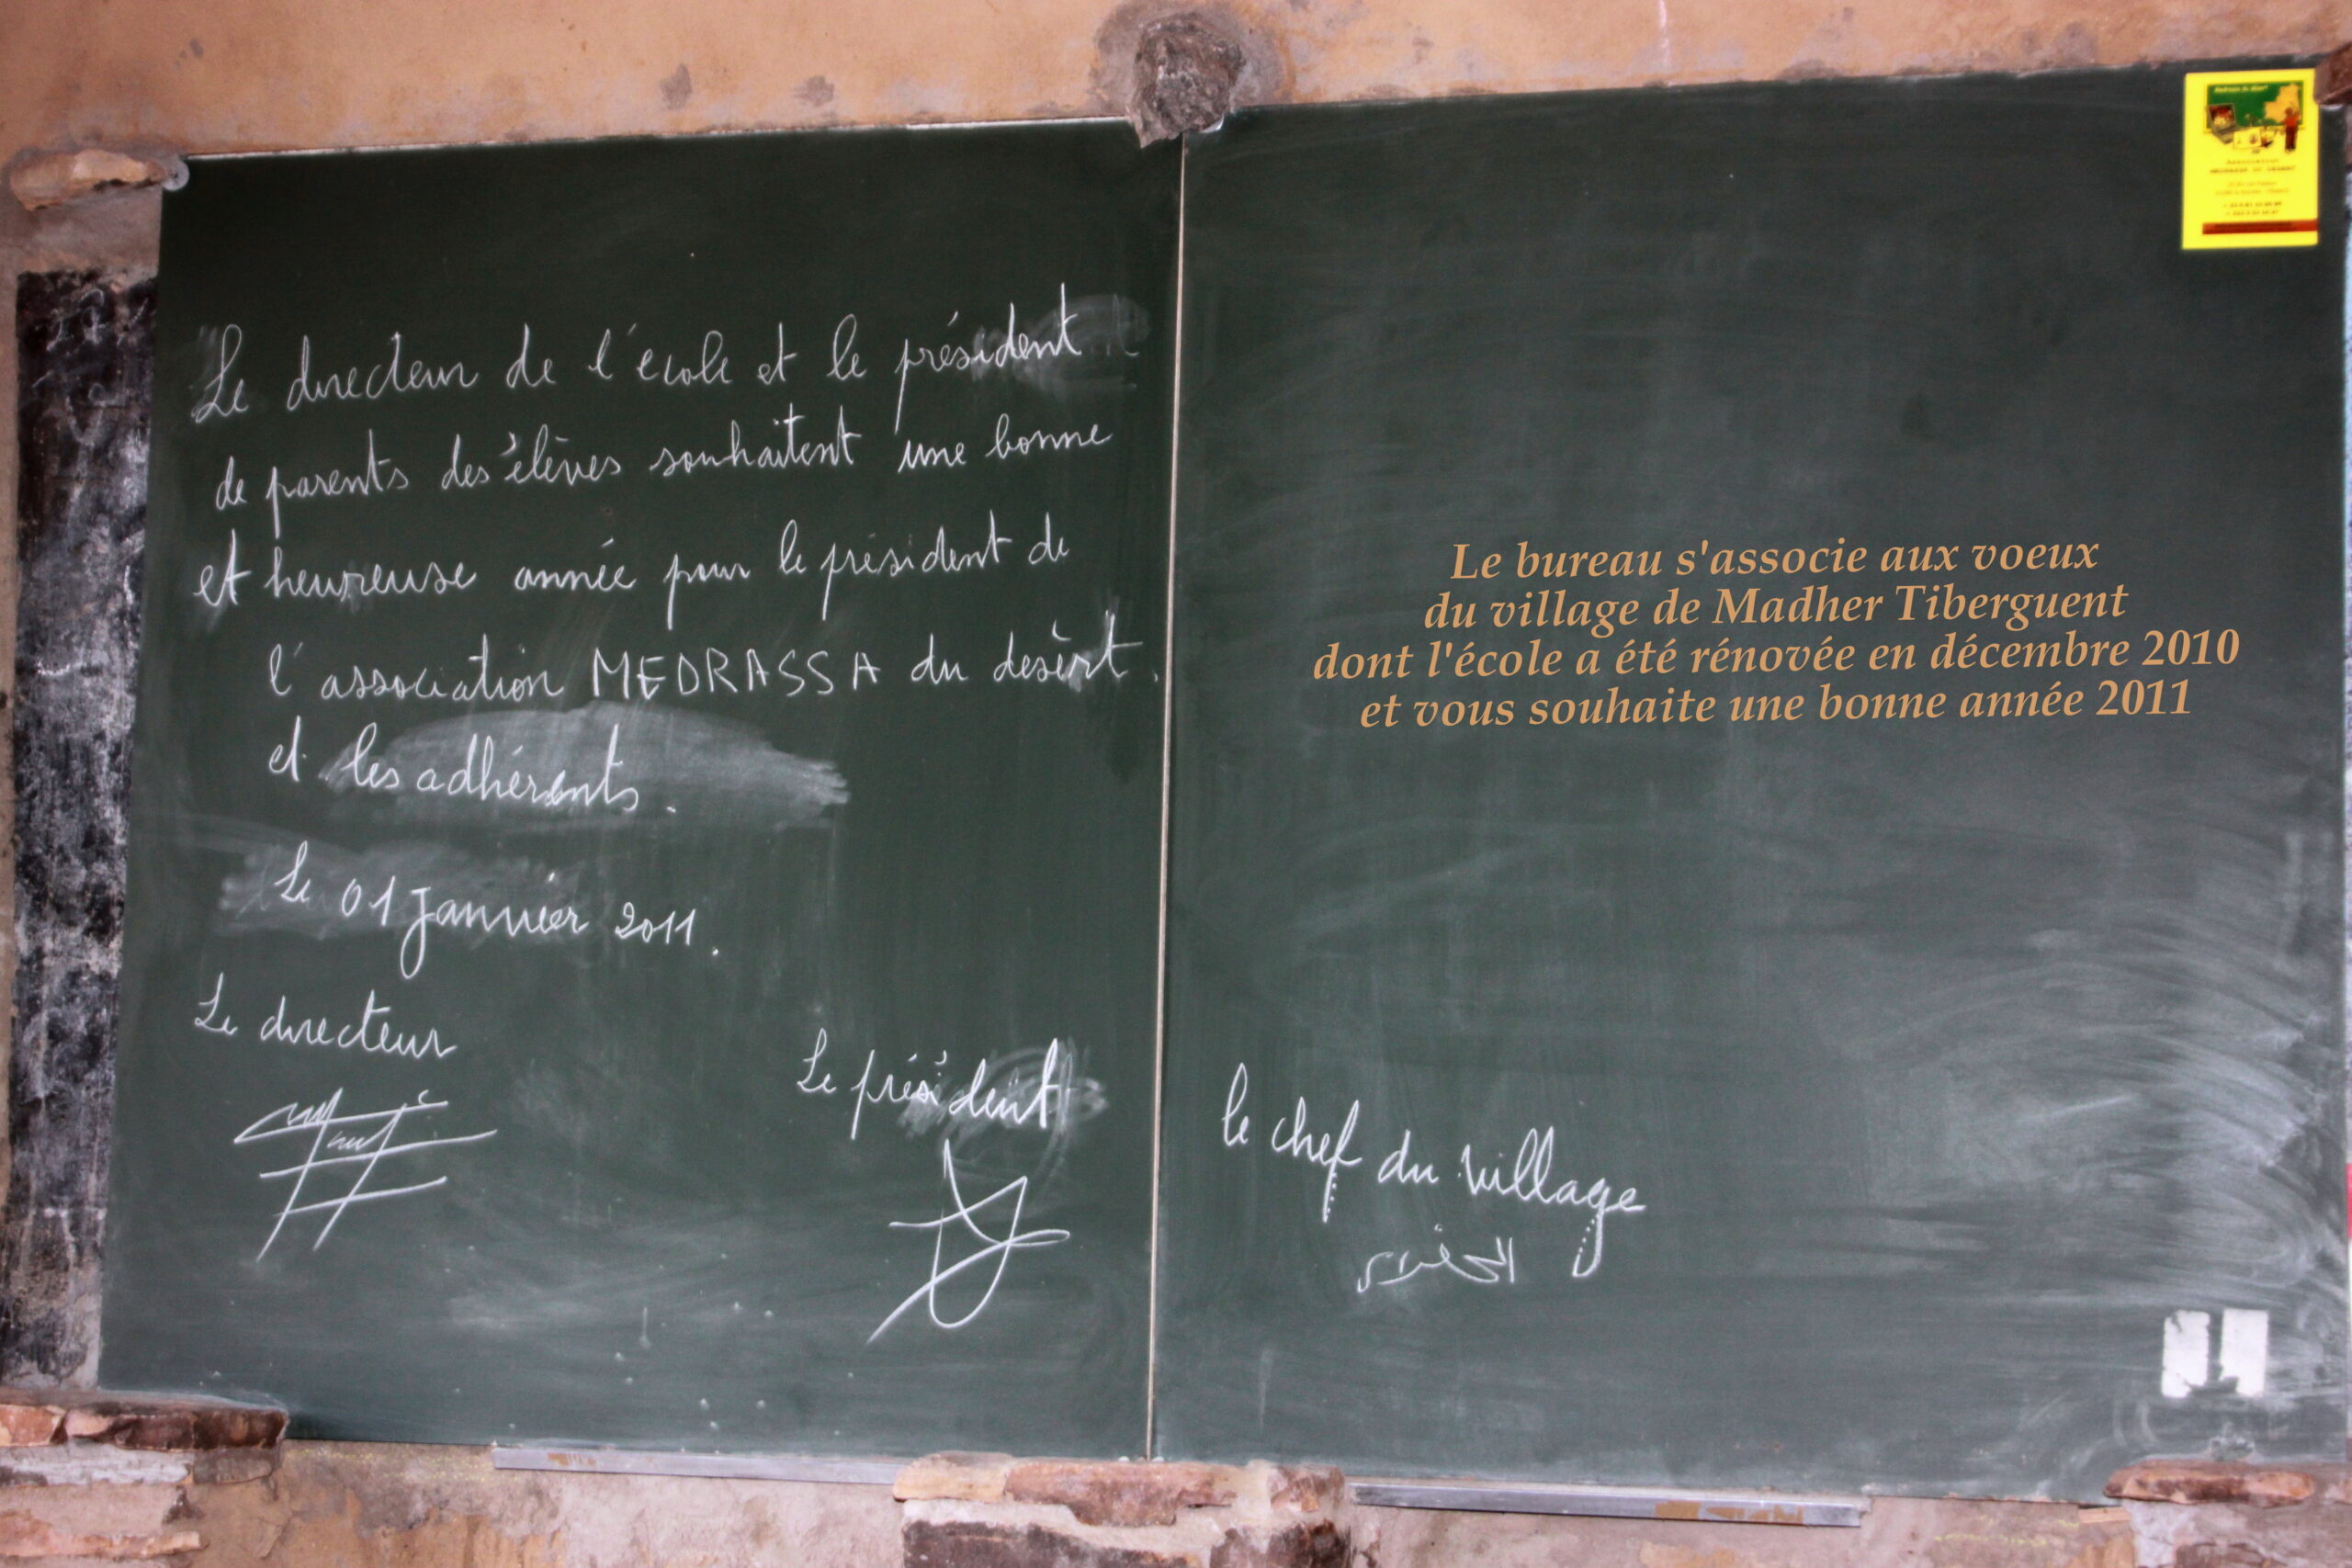 Le directeur de l'école et le président
de parents des élèves souhaitent une bonne
et heureuse année pour le président de
l'association MEDRASSA du desèrt.
et les adhérents.
Le 01 Janvier 2011.
Le directeur
Le président
Le bureau s'associe aux voeux
du village de Madher Tiberguent
dont l'école a été rénovée en décembre 2010
et vous souhaite une bonne année 2011
le chef du village